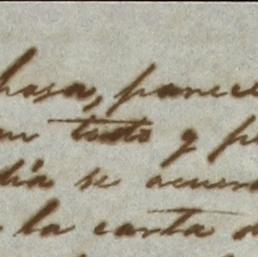 hasa, parece
en todo y p
dia se acuer
la carta d